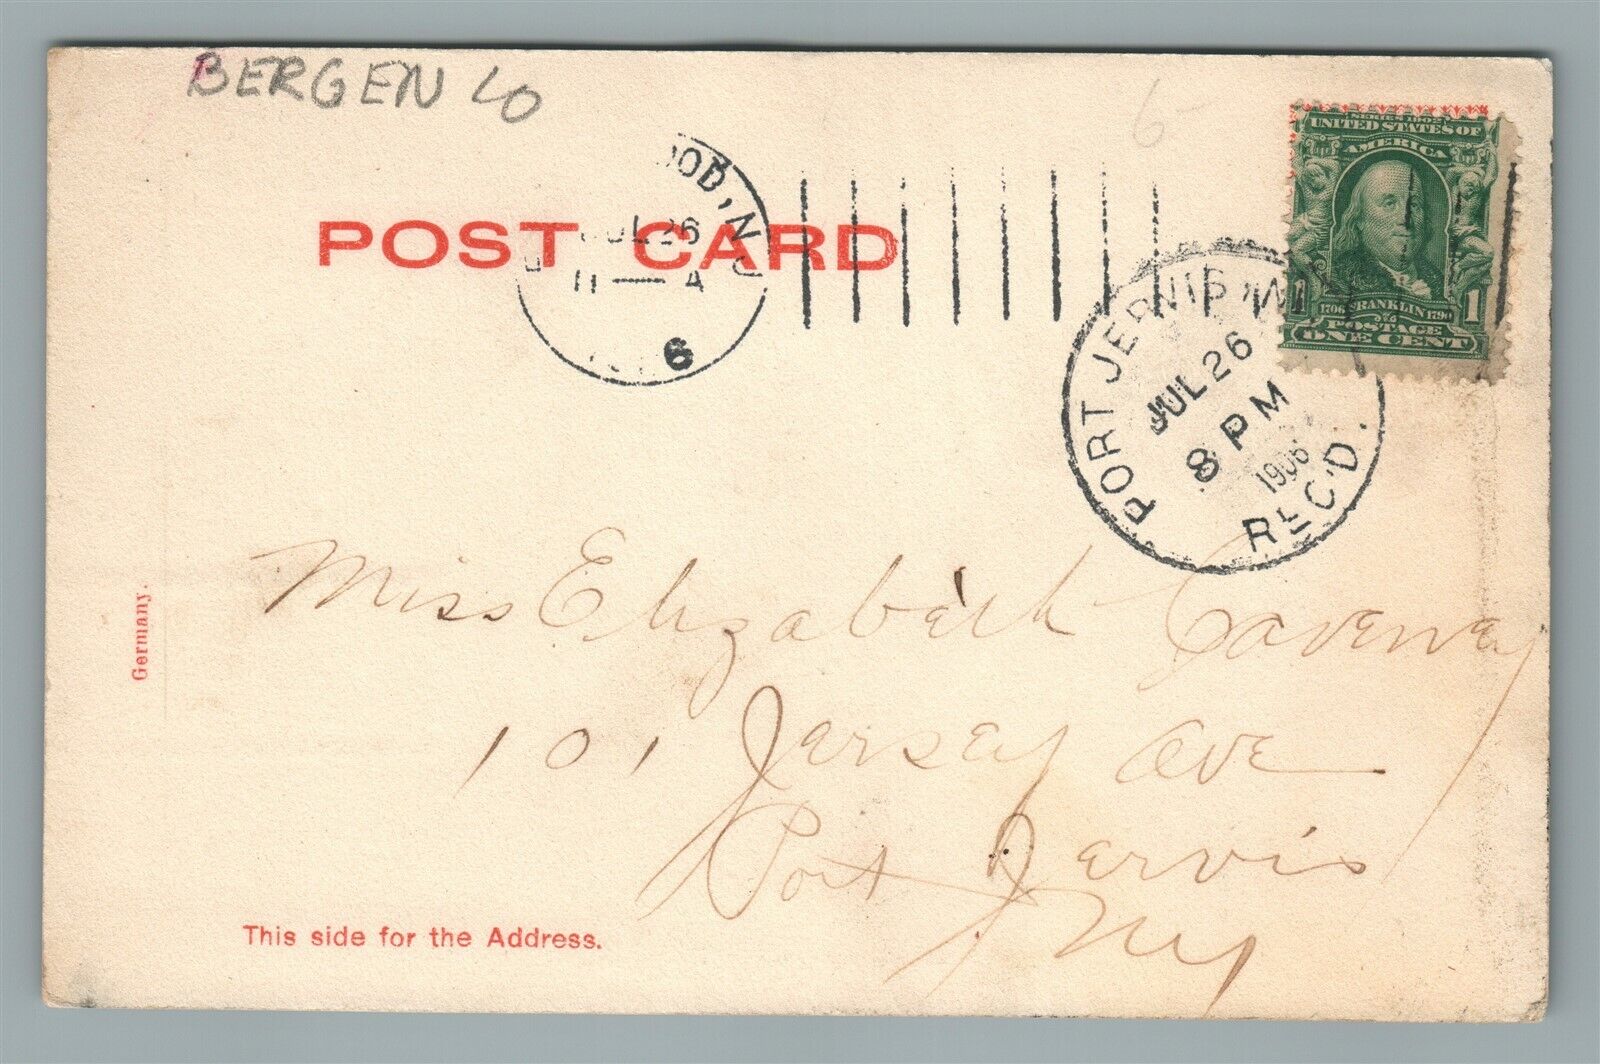 BERGEN CO
6
POST CARD
OOD, N J
JUL 26
11 — A
6
PORT JERVIS, N.Y.
JUL 26
8 PM
1906
REC'D.
SERIES 1902
UNITED STATES OF
AMERICA
1706 FRANKLIN 1790
1 POSTAGE 1
ONE CENT
Miss Elizabeth Caveney
101 Jersey Ave
Port Jervis
Ny
Germany.
This side for the Address.